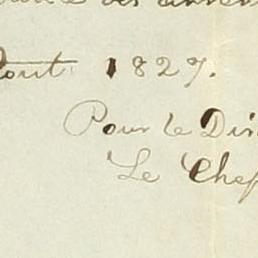 des
août 1827.
Pour le Dir
Le Chef